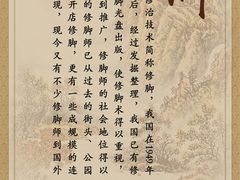 修治技术简称修脚，我国在1949年
后，经过发掘整理，我国已有修
脚光盘出版，使修脚术得以重视，
到推广，修脚师的社会地位得以
的修脚师已从过去的街头、公园
开店修脚，更有一些成规模的连
现，现今又有不少修脚师到国外